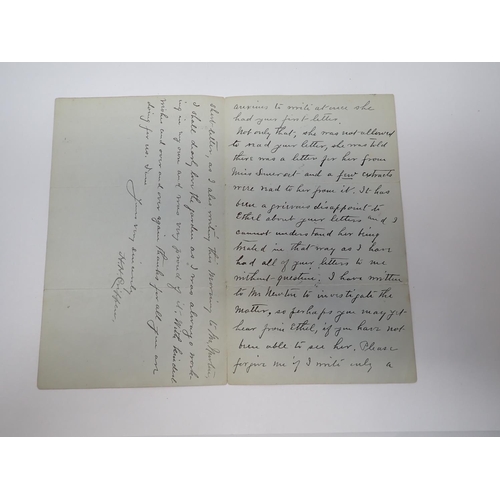 anxious to write at once she
had your first letter.
Not only that, she was not allowed
to read your letter, she was told
there was a letter for her from
Miss and a few extracts
were read to her from it. It has
been a grievous disappoint to
Ethel about your letters and I
cannot understand her being
treated in that way as I have
had all of your letters to me
without question, I have written
to Mr Newton to investigate the
matter, so perhaps you may yet
hear from Ethel, if you have not
been able to see her. Please
forgive me if I write only a
short letter, as I am also writing this morning to Mr Newton,
I shall dearly love the garden as I was always work-
ing in my own and was very proud of it. With kindest
wishes and once and once again thanks for all you are
doing for us. I am
Yours very sincerely
H H Crippen